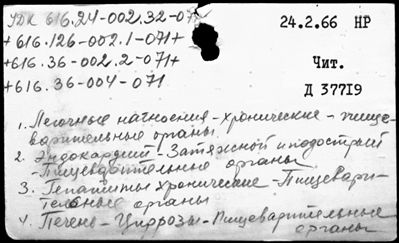 УДК 616.24-002.32-07
24.2.66 НР
+616.126-002.1-071+
+616.36-002.2-071+
Чит.
+616.36-004-071
Д 37719
1. Легочные нагноения-хронические-пище-
варительные органы.
2. Эндокардит-Затяжной и подострый
-Пищеварительные органы
3. Гепатиты хронические-Пищевари-
тельные органы
4. Печень-Циррозы-Пищеварительные
органы